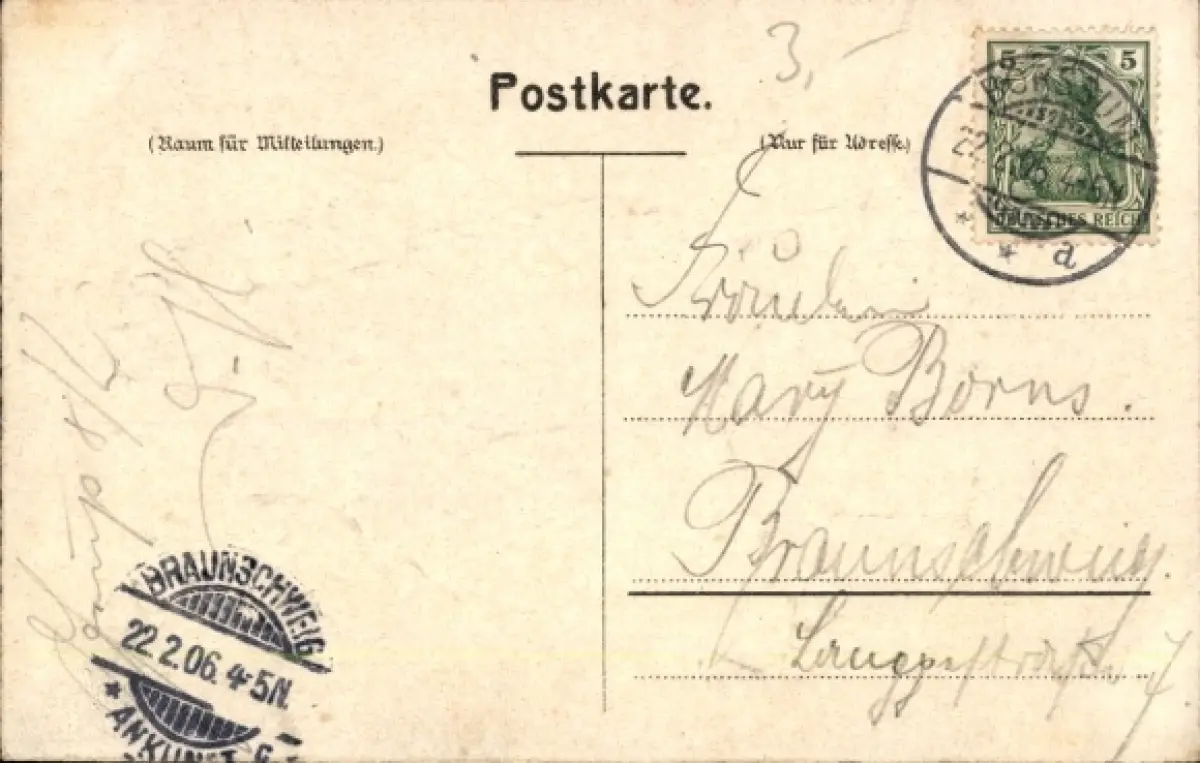 3,-
Postkarte.
(Raum für Mitteilungen.)
(Nur für Adresse.)
5 5
DEUTSCHES REICH
BÖRSSUM
22.2.06. 4-5N
* * a
Fräulein
Mary Borns.
Braunschweig.
Langestraße 7
BRAUNSCHWEIG
22.2.06. 4-5N.
* ANKUNFT